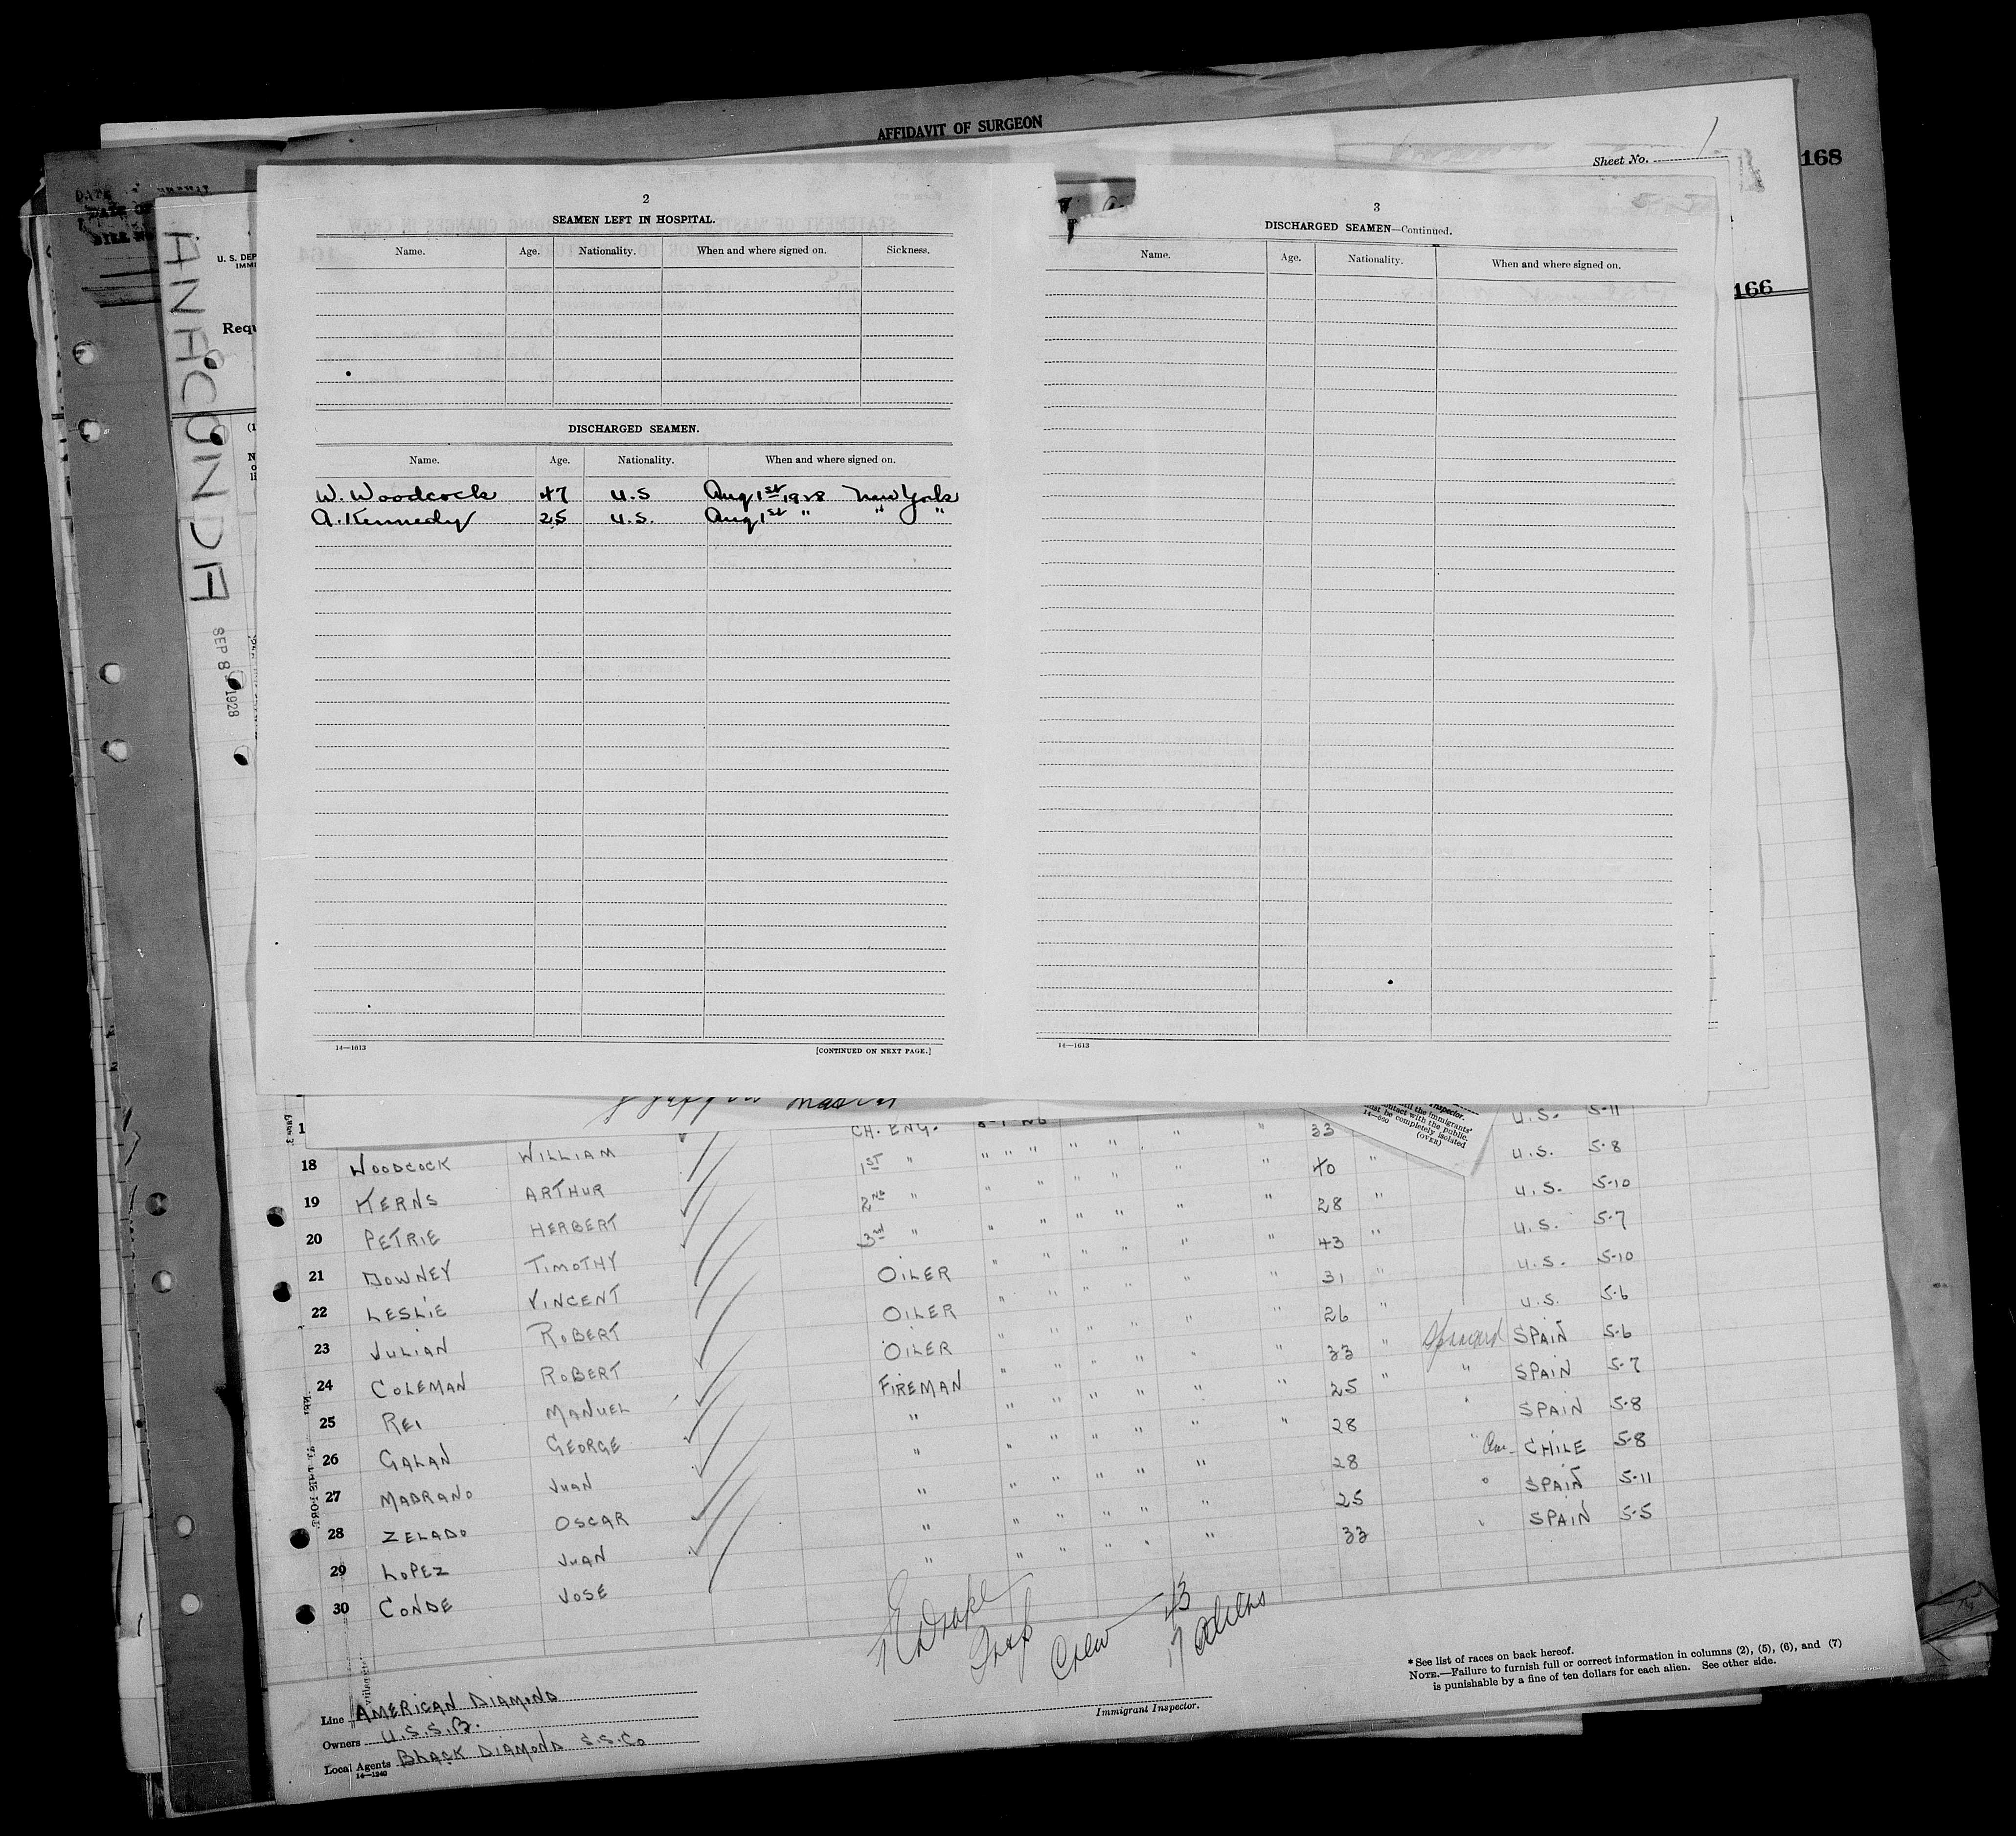 AFFIDAVIT OF SURGEON
Sheet No. 1
168
166
DATE
ANACONDA
SEP 8 1928
U. S. DEP
IMMI
Requ
2
SEAMEN LEFT IN HOSPITAL.
Name. Age. Nationality. When and where signed on. Sickness.
DISCHARGED SEAMEN.
Name. Age. Nationality. When and where signed on.
W. Woodcock 47 U.S Aug 1st 1928 New York
A. Kennedy 25 U.S. Aug 1st " " "
14—1613 [CONTINUED ON NEXT PAGE.]
3
DISCHARGED SEAMEN—Continued.
Name. Age. Nationality. When and where signed on.
14—1613
master
Inspector.
til the immigrants'
ontact with the public.
ust be completely isolated
14—600 (OVER)
1 CH. ENG. 33 " U.S. 5-11
18 WOODCOCK WILLIAM 1ST " " " " " " " " 40 " U.S. 5-8
19 KERNS ARTHUR 2ND " " " " " " " 28 " U.S. 5-10
20 PETRIE HERBERT 3rd " " " " " " " 43 " U.S. 5-7
21 DOWNEY TIMOTHY OILER " " " " " " 31 " U.S. 5-10
22 LESLIE VINCENT OILER " " " " " " 26 " U.S. 5-6
23 JULIAN ROBERT OILER " " " " " " 33 " Spaniard SPAIN 5-6
24 COLEMAN ROBERT FIREMAN " " " " " " 25 " " SPAIN 5-7
25 REI MANUEL " " " " " " " 28 " SPAIN 5-8
26 GALAN GEORGE " " " " " " 28 " Am- CHILE 5-8
27 MADRANO JUAN " " " " " " 25 " SPAIN 5-11
28 ZELADO OSCAR " " " " " " 33 " SPAIN 5-5
29 LOPEZ JUAN " " " " " "
30 CONDE JOSE
Drake
Insp
Crew 43
17 Aliens
Immigrant Inspector.
* See list of races on back hereof.
NOTE.—Failure to furnish full or correct information in columns (2), (5), (6), and (7)
is punishable by a fine of ten dollars for each alien. See other side.
Line AMERICAN DIAMOND
Owners U.S.S.B.
Local Agents BLACK DIAMOND S.S.Co
14—1240